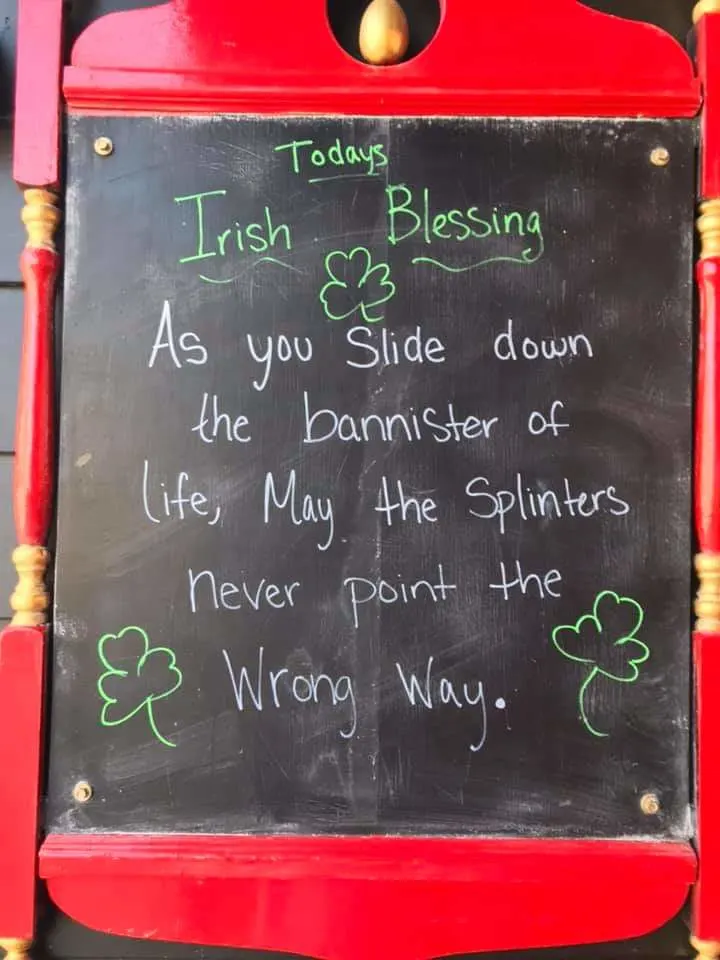 Todays
Irish Blessing
As you Slide down
the bannister of
life, May the Splinters
never point the
Wrong Way.